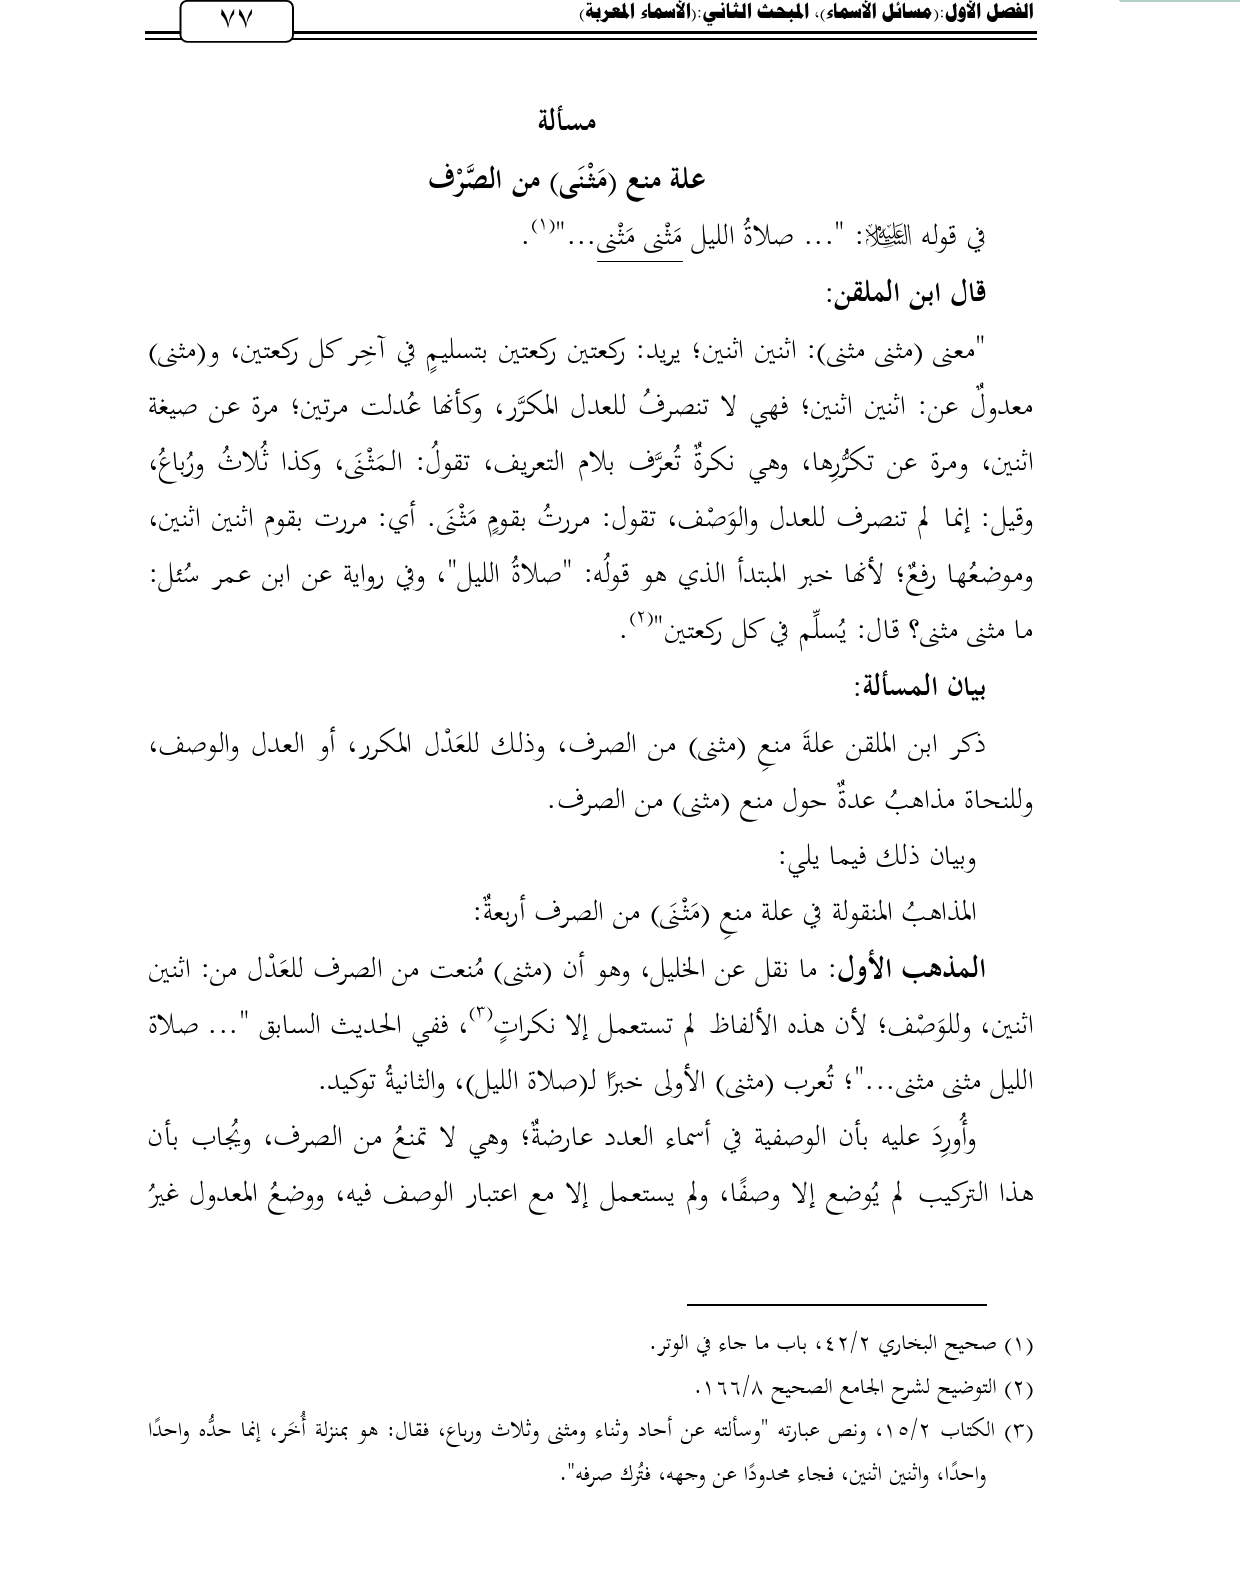 الفصل الأول:(مسائل الأسماء)، المبحث الثاني:(الأسماء المعربة)
٧٧
مسألة
علة منع (مَثْنَى) من الصَّرْف
في قوله ﵇: "... صلاةُ الليل مَثْنى مَثْنى..."(١).
قال ابن الملقن:
"معنى (مثنى مثنى): اثنين اثنين؛ يريد: ركعتين ركعتين بتسليمٍ في آخِر كل ركعتين، و(مثنى)
معدولٌ عن: اثنين اثنين؛ فهي لا تنصرفُ للعدل المكرَّر، وكأنها عُدلت مرتين؛ مرة عن صيغة
اثنين، ومرة عن تكرُّرِها، وهي نكرةٌ تُعرَّف بلام التعريف، تقولُ: المَثْنَى، وكذا ثُلاثُ ورُباعُ،
وقيل: إنما لم تنصرف للعدل والوَصْف، تقول: مررتُ بقومٍ مَثْنَى. أي: مررت بقوم اثنين اثنين،
وموضعُها رفعٌ؛ لأنها خبر المبتدأ الذي هو قولُه: "صلاةُ الليل"، وفي رواية عن ابن عمر سُئل:
ما مثنى مثنى؟ قال: يُسلِّم في كل ركعتين"(٢).
بيان المسألة:
ذكر ابن الملقن علةَ منعِ (مثنى) من الصرف، وذلك للعَدْل المكرر، أو العدل والوصف،
وللنحاة مذاهبُ عدةٌ حول منع (مثنى) من الصرف.
وبيان ذلك فيما يلي:
المذاهبُ المنقولة في علة منعِ (مَثْنَى) من الصرف أربعةٌ:
المذهب الأول: ما نقل عن الخليل، وهو أن (مثنى) مُنعت من الصرف للعَدْل من: اثنين
اثنين، وللوَصْف؛ لأن هذه الألفاظ لم تستعمل إلا نكراتٍ(٣)، ففي الحديث السابق "... صلاة
الليل مثنى مثنى..."؛ تُعرب (مثنى) الأولى خبرًا لـ(صلاة الليل)، والثانيةُ توكيد.
وأُورِدَ عليه بأن الوصفية في أسماء العدد عارضةٌ؛ وهي لا تمنعُ من الصرف، ويُجاب بأن
هذا التركيب لم يُوضع إلا وصفًا، ولم يستعمل إلا مع اعتبار الوصف فيه، ووضعُ المعدول غيرُ
(١) صحيح البخاري ٤٢/٢، باب ما جاء في الوتر.
(٢) التوضيح لشرح الجامع الصحيح ١٦٦/٨.
(٣) الكتاب ١٥/٢، ونص عبارته "وسألته عن أحاد وثناء ومثنى وثلاث ورباع، فقال: هو بمنزلة أُخَر، إنما حدُّه واحدًا
واحدًا، واثنين اثنين، فجاء محدودًا عن وجهه، فتُرك صرفه".